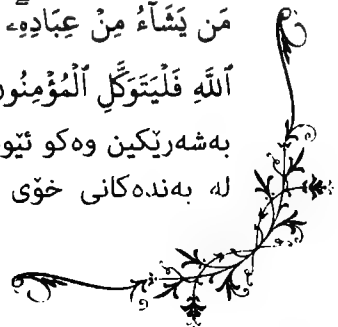 مَن يَشَآءُ مِنْ عِبَادِهِۦ
ٱللَّهِ فَلْيَتَوَكَّلِ ٱلْمُؤْمِنُونَ
بەشەرێکین وەکو ئێوە
لە بەندەکانی خۆی